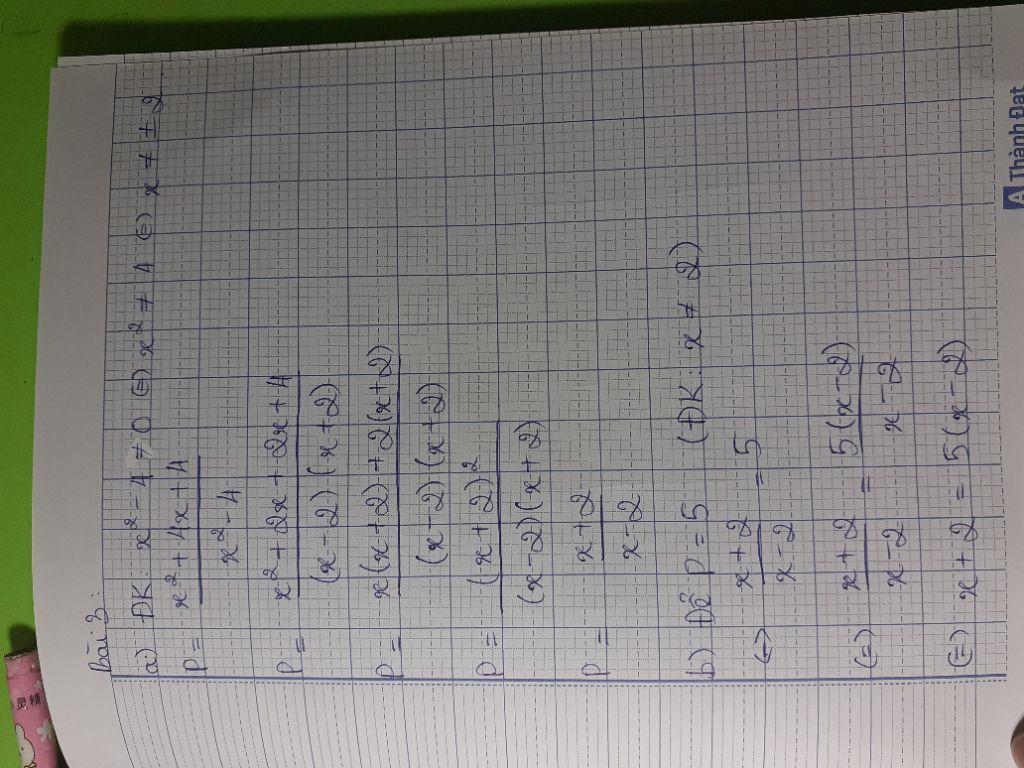 bài 3:
a) ĐK: x² - 4 ≠ 0 (=) x² ≠ 4 (=) x ≠ ± 2
P = (x² + 4x + 4)/(x² - 4)
P = (x² + 2x + 2x + 4)/((x - 2).(x + 2))
P = (x(x + 2) + 2(x + 2))/((x - 2)(x + 2))
P = (x + 2)²/((x - 2)(x + 2))
P = (x + 2)/(x - 2)
b) Để P = 5 (ĐK: x ≠ 2)
(=) (x + 2)/(x - 2) = 5
(=) (x + 2)/(x - 2) = 5(x - 2)/(x - 2)
(=) x + 2 = 5(x - 2)
A Thành Đạt